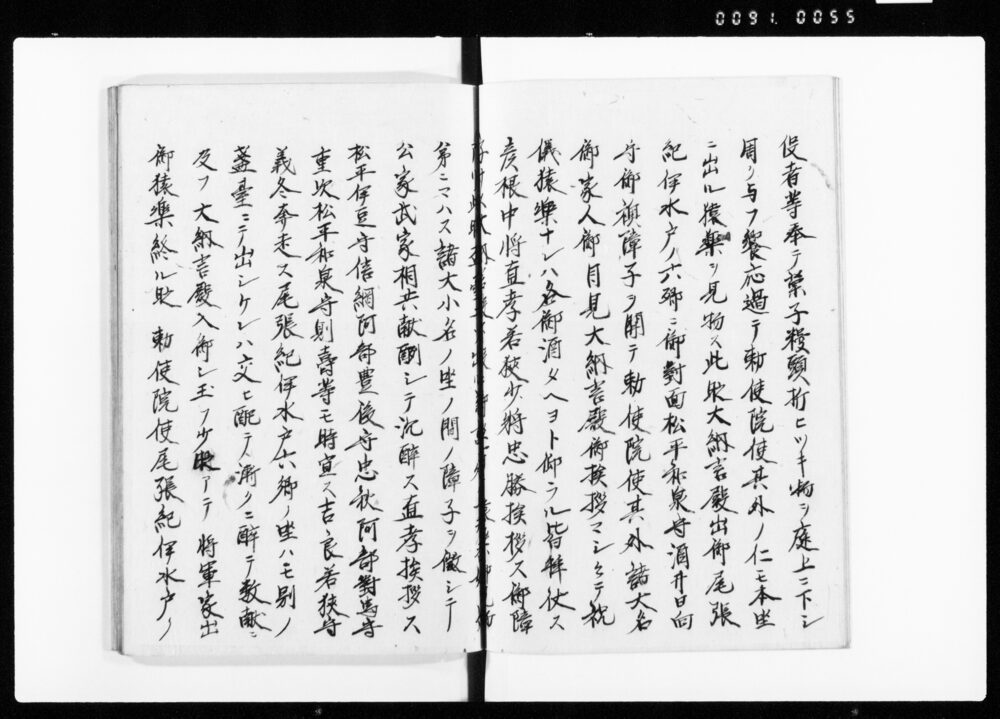 0091.0055
役者等奉テ菓子饅頭折ヒツキ物ヲ庭上ニ下シ
周ク与フ饗応過テ勅使院使其外ノ仁モ本坐
ニ出ル猿楽ヲ見物ス此時大納言殿出御尾張
紀伊水戸ノ六卿ニ御對面松平和泉守酒井日向
守御襖障子ヲ開テ勅使院使其外諸大名
御家人御目見大納言殿御挨拶マシケテ祝
儀猿樂ナレハ各御酒タヘヨト仰ラル皆拜伏ス
彦根中将直孝若狭少将忠勝挨拶ス御障
第ニマハス諸大小名ノ坐ノ間ノ障子ヲ徹シテ
公家武家相共献酬シテ沉醉ス直孝挨拶ス
松平伊豆守信綱阿部豊後守忠秋阿部對馬守
重次松平和泉守則壽等モ時宜ス吉良若狭守
義冬奔走ス尾張紀伊水戸六卿ノ坐ハモ別ノ
盞臺ニテ出シケレハ交ヒ配テ漸クニ醉テ数献ニ
及フ大納言殿入御シ玉フ少時アテ 将軍家出
御猿樂終ル時 勅使院使尾張紀伊水戸ノ